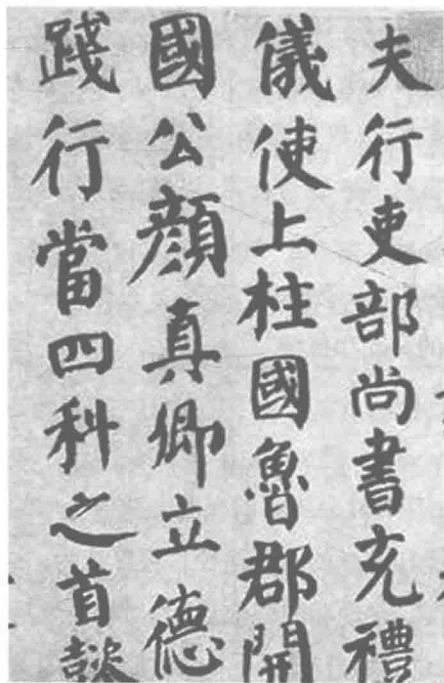 夫行吏部尚書充禮
儀使上柱國魯郡開
國公顔真卿立德
踐行當四科之首懿